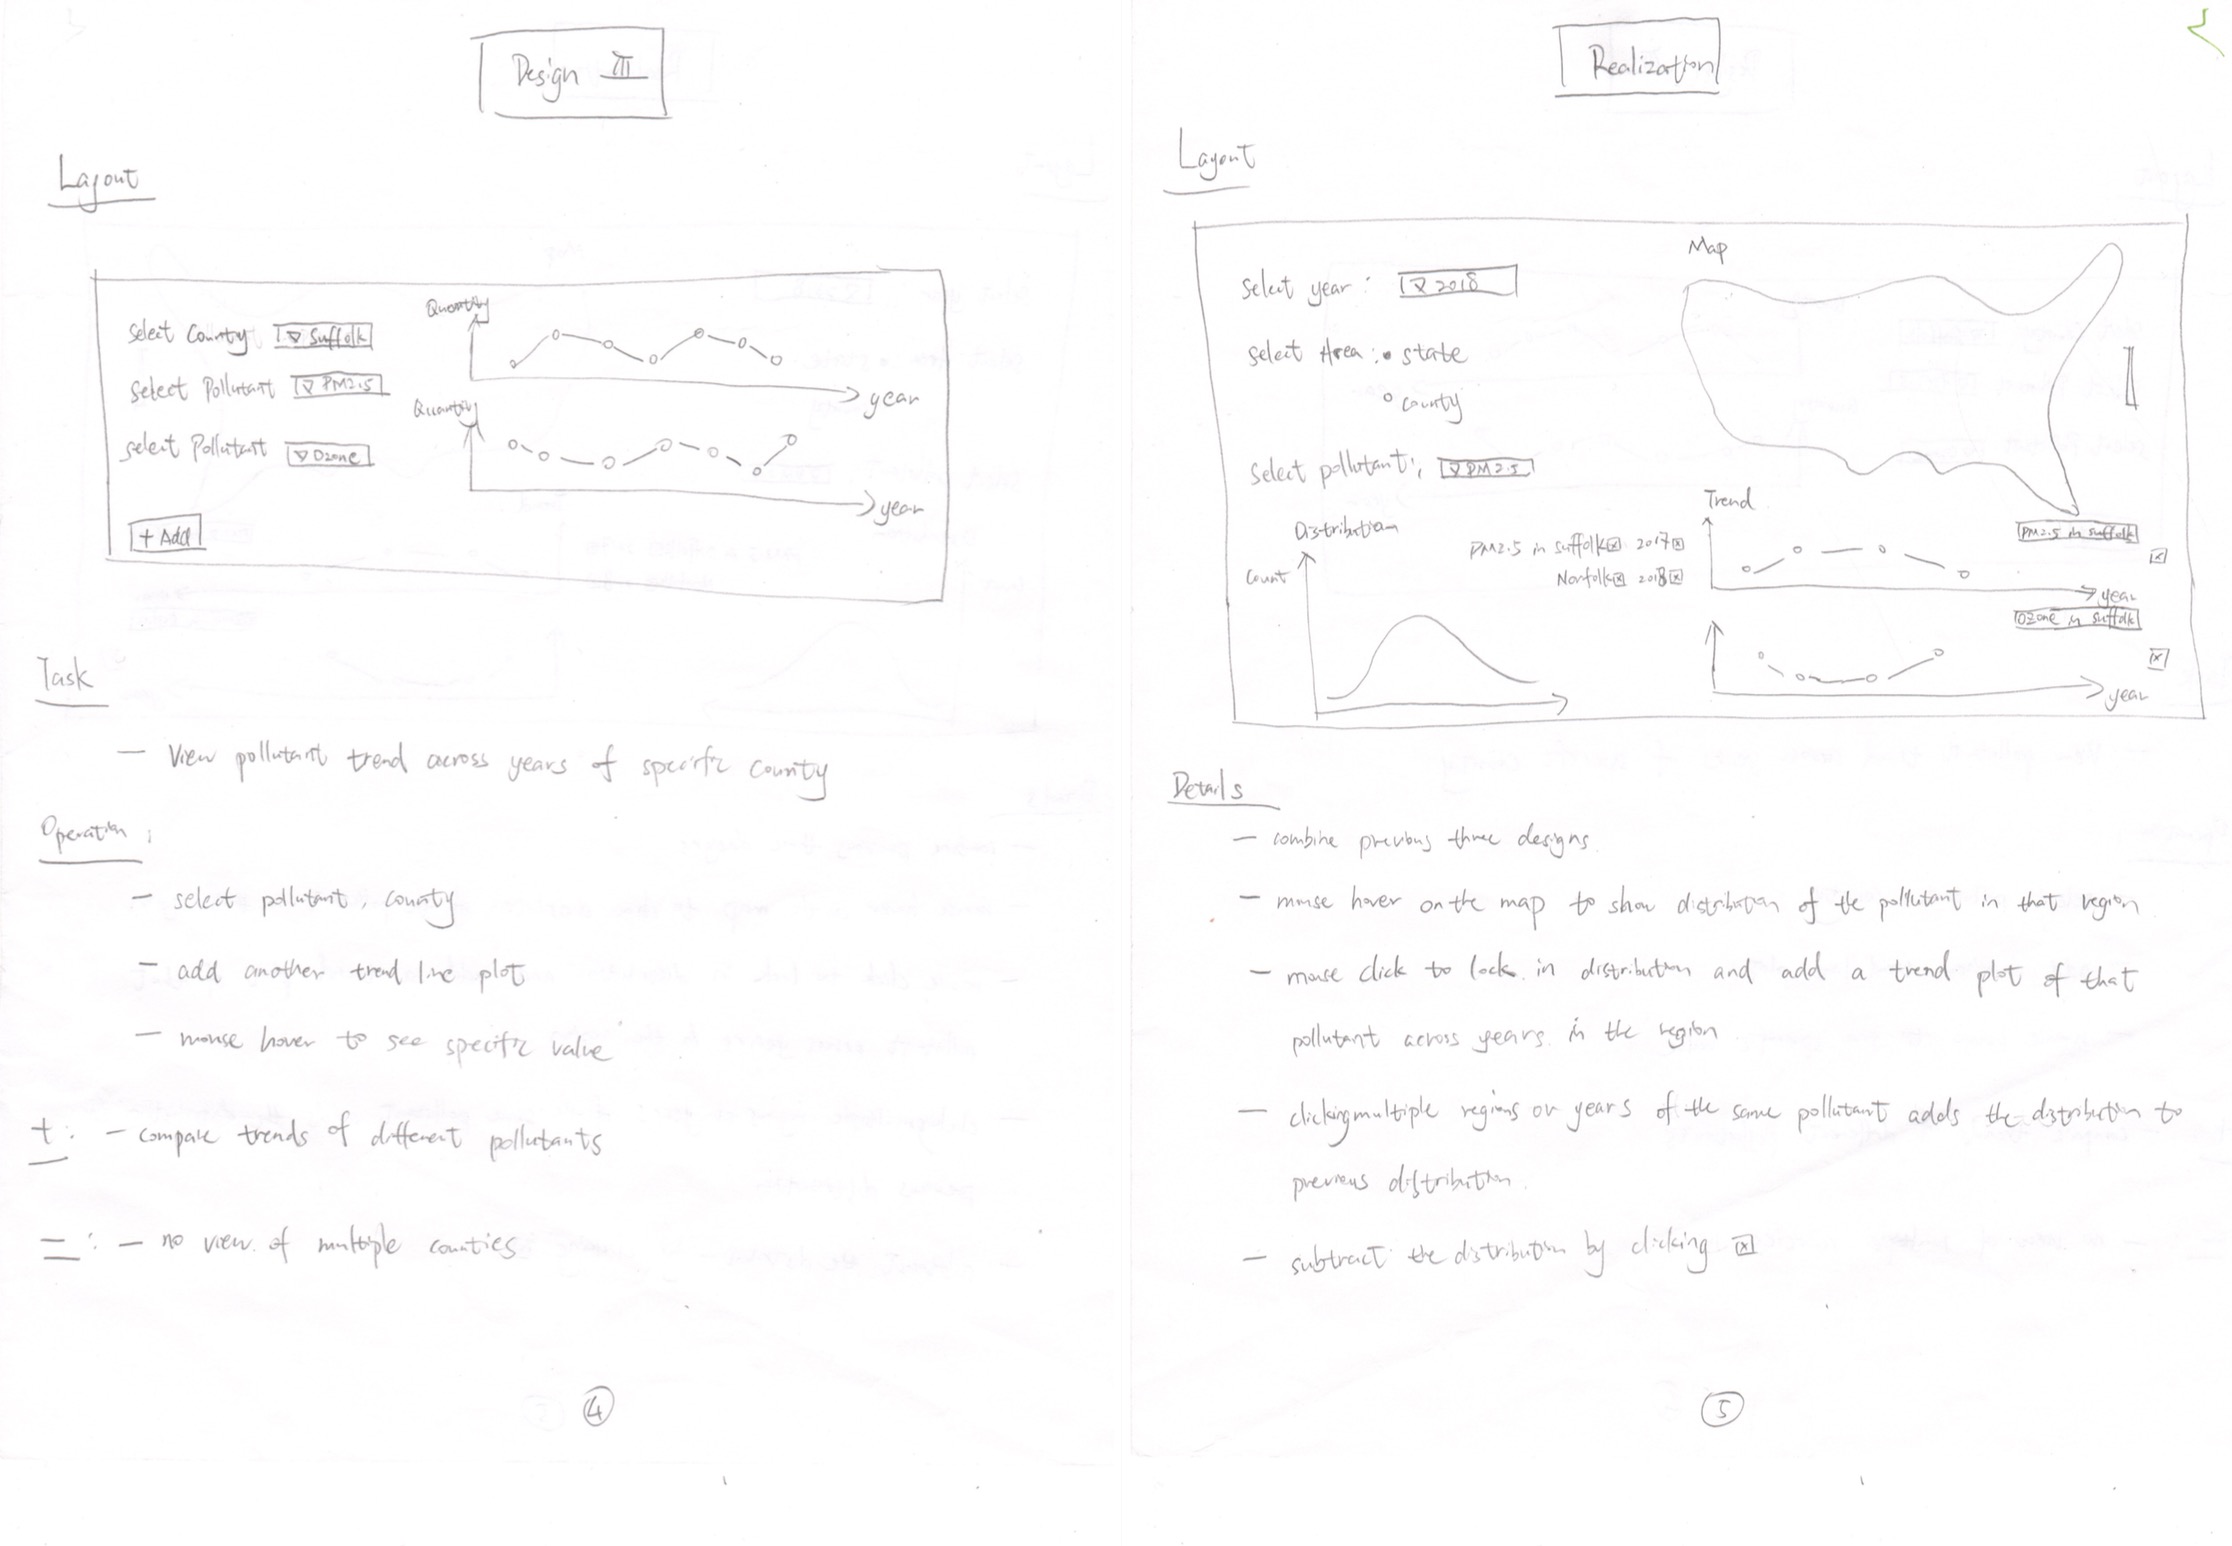 Design III
Layout
Select County ▽ Suffolk
Select Pollutant ▽ PM2.5
Select Pollutant ▽ Ozone
+ Add
Quantity
year
Quantity
year
Task
— View pollutant trend across years of specific county
Operation:
— select pollutant, county
— add another trend line plot
— mouse hover to see specific value
+: — compare trends of different pollutants
—: — no view of multiple counties
4
Realization
Layout
Select year: ▽ 2018
Select Area: • state
◦ county
Select pollutant: ▽ PM2.5
Map
Distribution
Count
PM2.5 in Suffolk ☒ 2017 ☒
Norfolk ☒ 2018 ☒
Trend
PM2.5 in Suffolk
☒
year
Ozone in Suffolk
☒
year
Details
— combine previous three designs.
— mouse hover on the map to show distribution of the pollutant in that region
— mouse click to lock in distribution and add a trend plot of that
pollutant across years in the region
— clicking multiple regions or years of the same pollutant adds the distribution to
previous distribution.
— subtract the distribution by clicking ☒
5